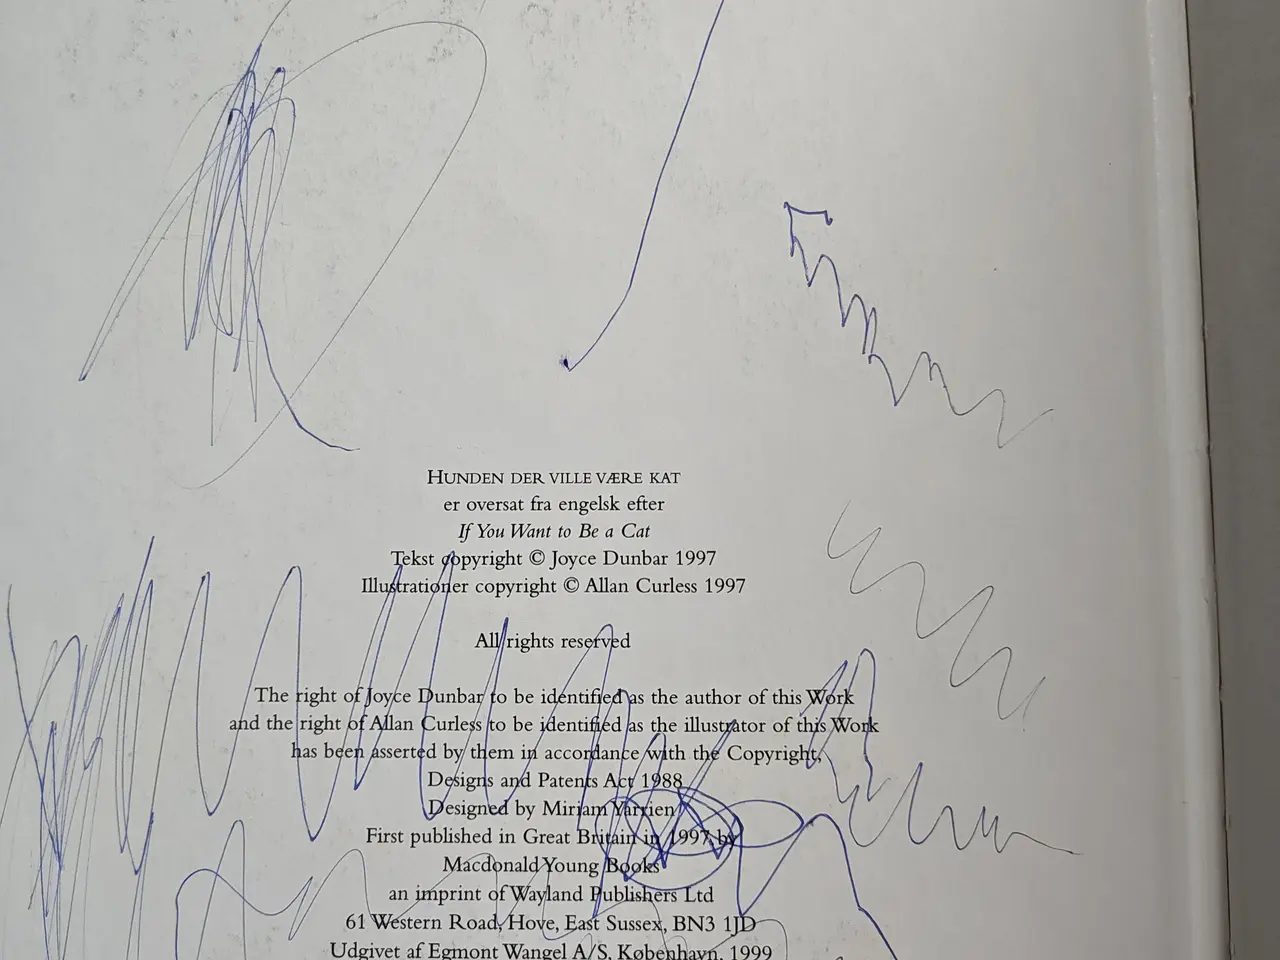 HUNDEN DER VILLE VÆRE KAT
er oversat fra engelsk efter
If You Want to Be a Cat
Tekst copyright © Joyce Dunbar 1997
Illustrationer copyright © Allan Curless 1997
All rights reserved
The right of Joyce Dunbar to be identified as the author of this Work
and the right of Allan Curless to be identified as the illustrator of this Work
has been asserted by them in accordance with the Copyright,
Designs and Patents Act 1988
Designed by Miriam Yarrien
First published in Great Britain in 1997 by
Macdonald Young Books
an imprint of Wayland Publishers Ltd
61 Western Road, Hove, East Sussex, BN3 1JD
Udgivet af Egmont Wangel A/S, København, 1999